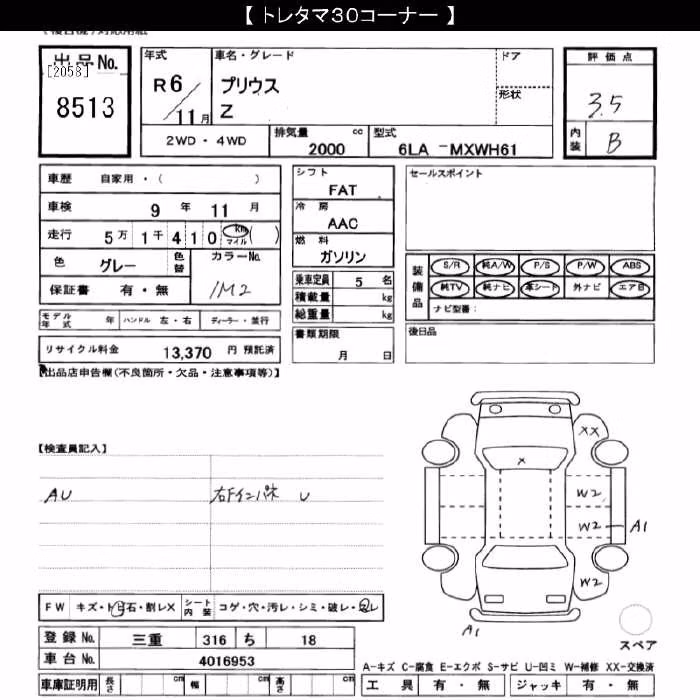 【 トレタマ30コーナー 】
出品No.
[2058]
8513
年式
R6
11月
車名・グレード
プリウス
Z
ドア
形状
2WD・4WD
排気量
cc
2000
型式
6LA -MXWH61
評価点
3.5
内装
B
車歴 自家用・( )
車検 9 年 11 月
走行 5万 1千 4 1 0 km マイル ( )
色 グレー
色替
カラーNo.
1M2
保証書 有・無
モデル年式 年 ハンドル 左・右 ディーラー・並行
リサイクル料金 13,370 円 預託済
シフト
FAT
冷房
AAC
燃料
ガソリン
乗車定員 5 名
積載量 kg
総重量 kg
書類期限
月 日
セールスポイント
装備品
S/R 純A/W P/S P/W ABS
純TV 純ナビ 革シート 外ナビ エアB
ナビ型番:
後日品
【出品店申告欄(不良箇所・欠品・注意事項等)】
【検査員記入】
AU
右Fインパネ U
XX
X
W2
W2
A1
W2
A1
スペア
FW キズ・トビ石・割レX
シート内装 コゲ・穴・汚レ・シミ・破レ・スレ
登録No. 三重 316 ち 18
車台No. 4016953
車庫証明用 長さ cm 幅 cm 高さ cm
A-キズ C-腐食 E-エクボ S-サビ U-凹ミ W-補修 XX-交換済
工具 有・無 ジャッキ 有・無